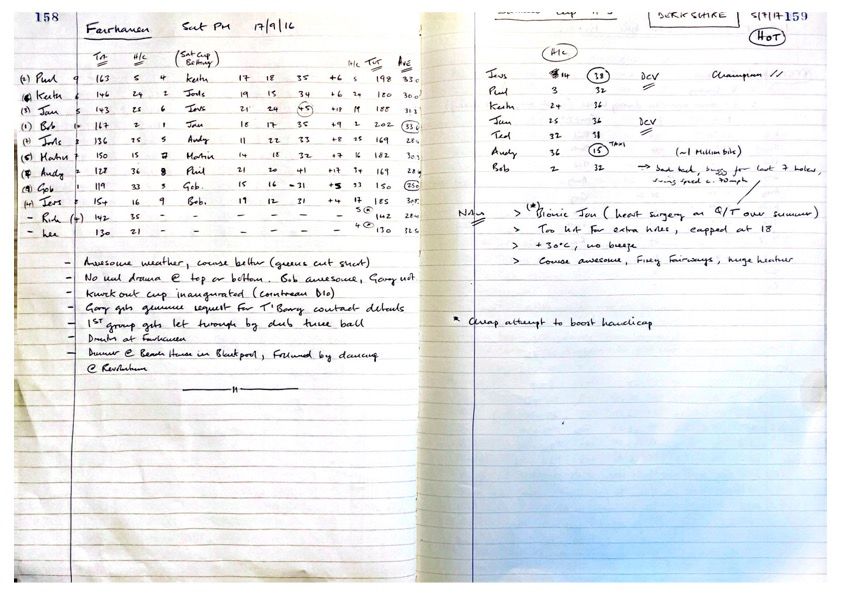 158
Fairhaven Sat PM 17/9/16
H/C (Sat Cup Betting) H/C TOT AVE
(2) Paul 9 163 5 4 Keith 17 18 35 +6 5 198 33.0
Keith 6 146 24 2 Jovs 19 15 34 +6 24 180 30.0
(3) Jan 5 143 25 6 Jovs 21 24 45 +18 19 188 31.3
(1) Bob 10 167 2 1 Jan 18 17 35 +9 2 202
(7) 136 25 5 Andy 11 22 33 +8 25 169
(5) Martin 7 150 15 Martin 14 18 32 +7 16 182
Andy 2 128 36 8 Phil 21 20 41 +17 34 169
(9) Gob 1 119 33 5 Gob. 15 16 - 31 +5 33 150
Jers 8 154 16 9 Bob. 19 12 31 +4 17 185
- Rich (4) 142 35 142
- Lee 130 21 - 130
- Awesome weather, course better (queens cut short)
- No real drama @ top or bottom. Bob awesome, Gary not
- Knockout cup inaugurated (Cointreau D10)
- Gary gets genuine request for T'Barry contact details
- 1ST group gets let through by dub three ball
- Drinks at Fairhaven
- Dinner @ Beach House in Blackpool, followed by dancing
@ Revolution
H
159
BERKSHIRE 5/7/17
HOT
H/C
Jovs 14 38 DCV Champion //
Paul 3 32
Keith 24 36
Jan 25 36 DCV
Ted 32 38
Andy 36 15 TAXI (~1 Million bits)
Bob 2 32 → bad, for last 7 holes,
swing speed c. 70mph
> (*) Bionic Jan (heart surgery on Q/T over summer)
> Too hot for extra holes, capped at 18
> +30°C, no breeze
> Course awesome, Firey Fairways, huge heather
* Cheap attempt to boost handicap